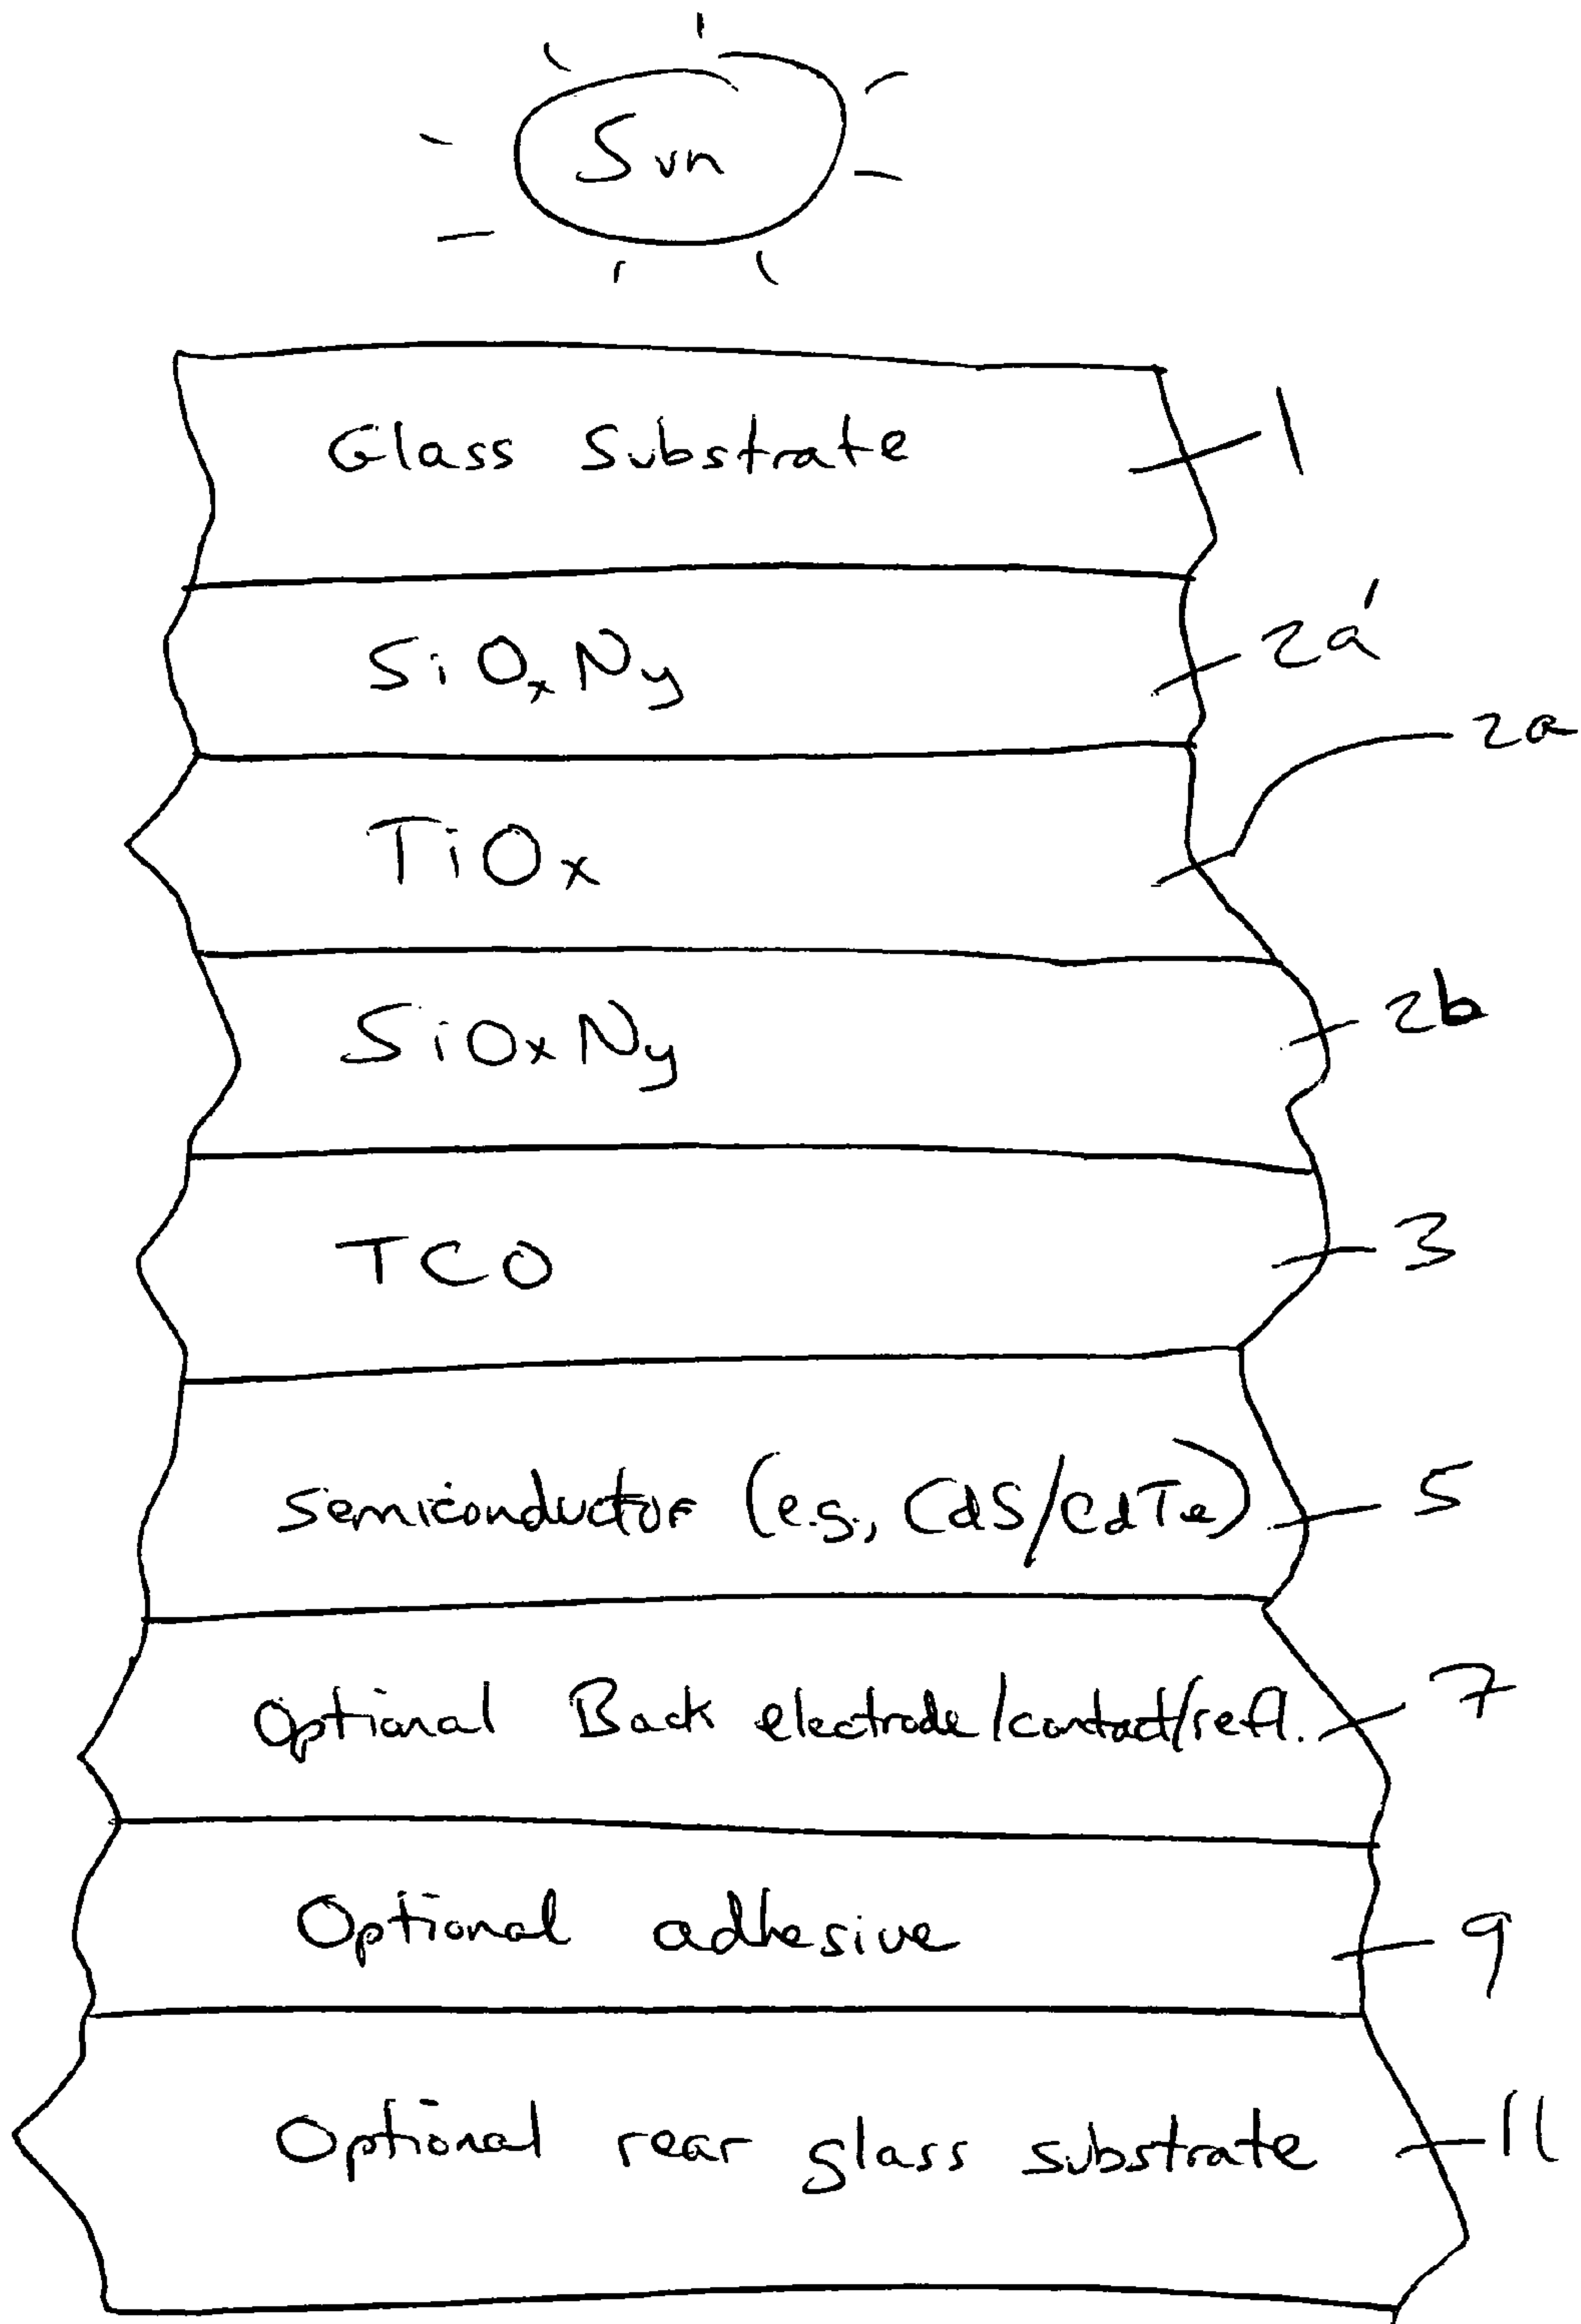 Sun
Glass Substrate 1
SiOxNy 2a'
TiOx 2a
SiOxNy 2b
TCO 3
Semiconductor (e.g., CdS/CdTe) 5
Optional Back electrode/contact/refl. 7
Optional adhesive 9
Optional rear glass substrate 11